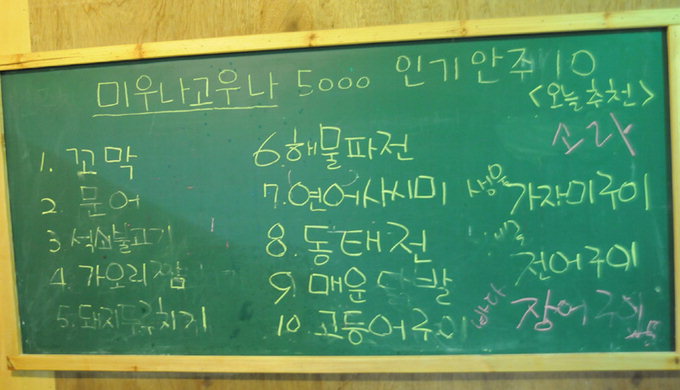 미우나고우나 5000 인기안주 10
<오늘추천>
소라
1. 꼬막
2. 문어
3. 석쇠불고기
4. 가오리찜
5. 돼지두루치기
6. 해물파전
7. 연어사시미
8. 동태전
9. 매운닭발
10. 고등어구이
가자미구이
전어구이
바다 장어구이